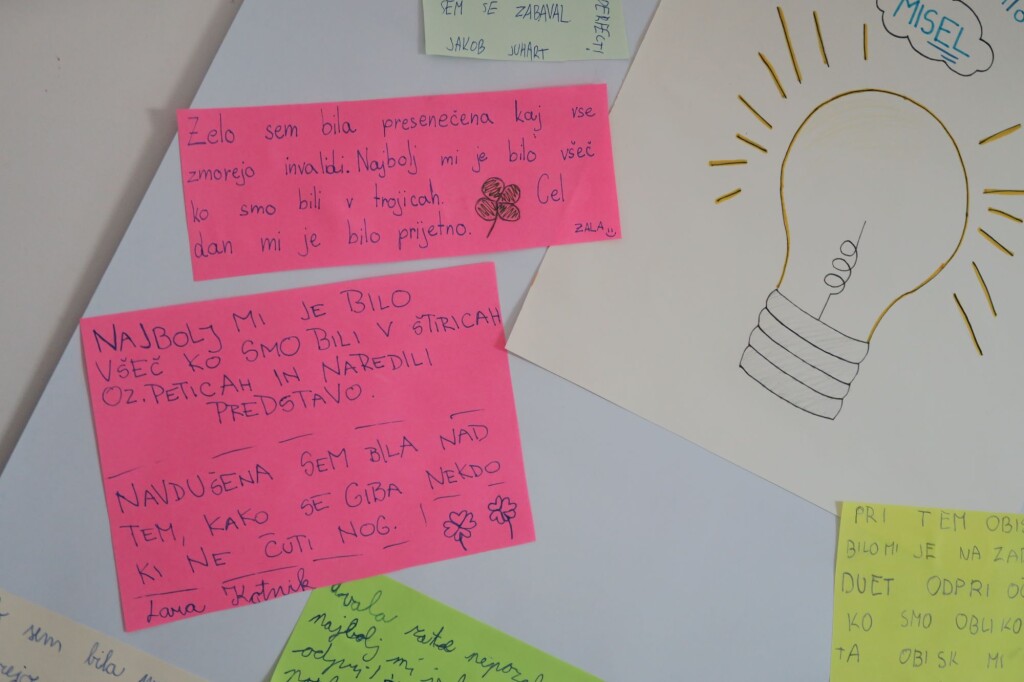 SEM SE ZABAVAL
PERFECT!
JAKOB JUHART
MISEL
Zelo sem bila presenečena kaj vse
zmorejo invalidi. Najbolj mi je bilo všeč
ko smo bili v trojicah. Cel
dan mi je bilo prijetno.
ZALA
NAJBOLJ MI JE BILO
VŠEČ KO SMO BILI V ŠTIRICAH
OZ. PETICAH IN NAREDILI
PREDSTAVO.
NAVDUŠENA SEM BILA NAD
TEM, KAKO SE GIBA NEKDO
KI NE ČUTI NOG. !
Lara Kotnik
PRI TEM OBIS
BILO MI JE NA ZAČ
DUET ODPRI OČ
KO SMO OBLIKO
TA OBISK MI
sem bila
najbolj mi